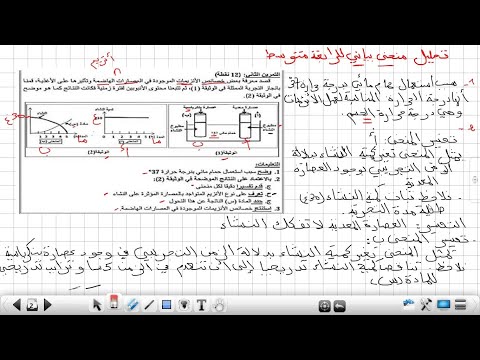 تحليل منحنى بياني للرابعة متوسط
أنزيم
التمرين الثاني: (12 نقطة)
قصد معرفة بعض خصائص الأنزيمات الموجودة في العصارات الهاضمة وتأثيرها على الأغذية، قمنا
بإنجاز التجربة الممثلة في الوثيقة (1)، ثم تتبعنا محتوى الأنبوبين لفترة زمنية فكانت النتائج كما هو موضح
في الوثيقة (2).
الوثيقة(2)
الوثيقة(1)
التعليمات:
1. وضح سبب استعمال حمام مائي بدرجة حرارة 37°
2. بالاعتماد على النتائج الموضحة في الوثيقة (2):
أ. قدم تفسيرا دقيقا لكل منحنى.
ب. تعرف على نوع الأنزيم المتواجد بالعصارة المؤثرة على النشاء
ج. حدد المادة (س) الناتجة عن هذا التحول.
3. استنتج خصائص الأنزيمات الموجودة في العصارات الهاضمة.
1- سبب استعمال حمام مائي بدرجة حرارة 37
لأنها درجة الحرارة المثالية لعمل الأنزيمات
وهي درجة حرارة الجسم
2-
تفسير المنحنى أ:
يمثل المنحنى تغير كمية النشاء بدلالة
الزمن التجريبي بوجود العصارة
المعدية
نلاحظ ثبات كمية النشاء
طيلة مدة التجربة
التفسير: العصارة المعدية لا تفكك النشاء
تفسير المنحنى ب:
يمثل المنحنى تغير كمية النشاء بدلالة الزمن التجريبي في وجود عصارة بنكرياسية
نلاحظ تناقص كمية النشاء تدريجيا إلى أن تنعدم في الزمن وتزايد تدريجي
للمادة (س)